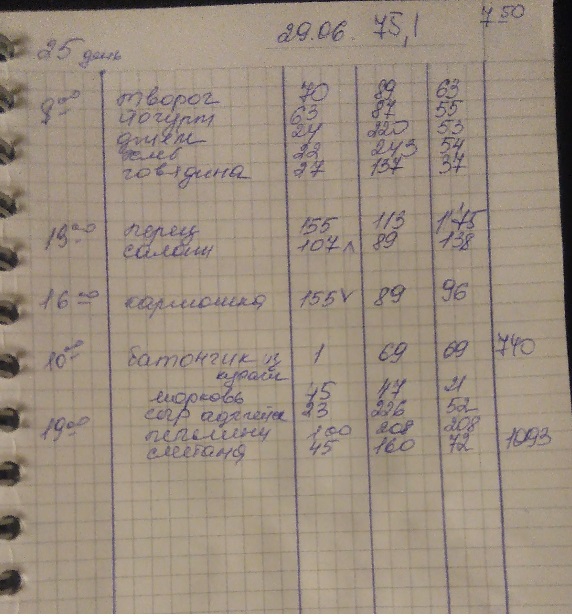 29.06. 75,1 7 50
25 день
9 00 творог 70 89 63
йогурт 63 87 55
джем 24 220 53
хлев 22 243 54
говядина 27 137 37
13 00 перец 155 113 175
салат 107 89 138
16 00 картошка 155 89 96
10 00 батончик 1 69 69 740
морковь 45 47 21
сыр адыгейск 23 226 52
19 00 пельмени 100 208 208
сметана 45 160 72 1093